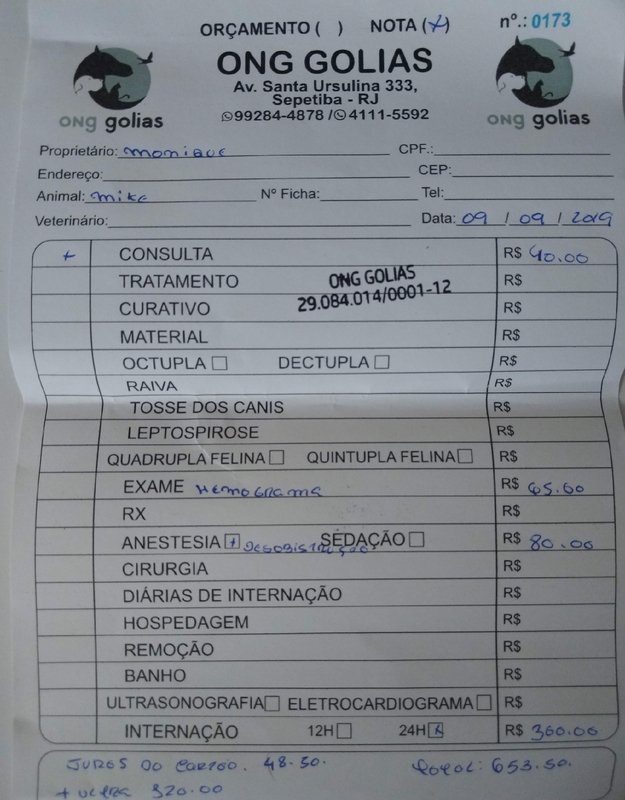 ORÇAMENTO ( ) NOTA (X) nº.: 0173
ONG GOLIAS
Av. Santa Ursulina 333,
Sepetiba - RJ
99284-4878 / 4111-5592
ong golias
ong golias
Proprietário: Monique CPF.:
Endereço: CEP:
Animal: Mike Nº Ficha: Tel:
Veterinário: Data: 09 / 09 / 2019
+ CONSULTA R$ 40.00
TRATAMENTO R$
ONG GOLIAS
29.084.014/0001-12
CURATIVO R$
MATERIAL R$
OCTUPLA DECTUPLA R$
RAIVA R$
TOSSE DOS CANIS R$
LEPTOSPIROSE R$
QUADRUPLA FELINA QUINTUPLA FELINA R$
EXAME Hemograma R$ 65.00
RX R$
ANESTESIA + Desobistrução SEDAÇÃO R$ 80.00
CIRURGIA R$
DIÁRIAS DE INTERNAÇÃO R$
HOSPEDAGEM R$
REMOÇÃO R$
BANHO R$
ULTRASONOGRAFIA ELETROCARDIOGRAMA R$
INTERNAÇÃO 12H 24H X R$ 300.00
JUROS DO CARTÃO. 48.50. TOTAL: 653.50.
+ ULTRA 120.00